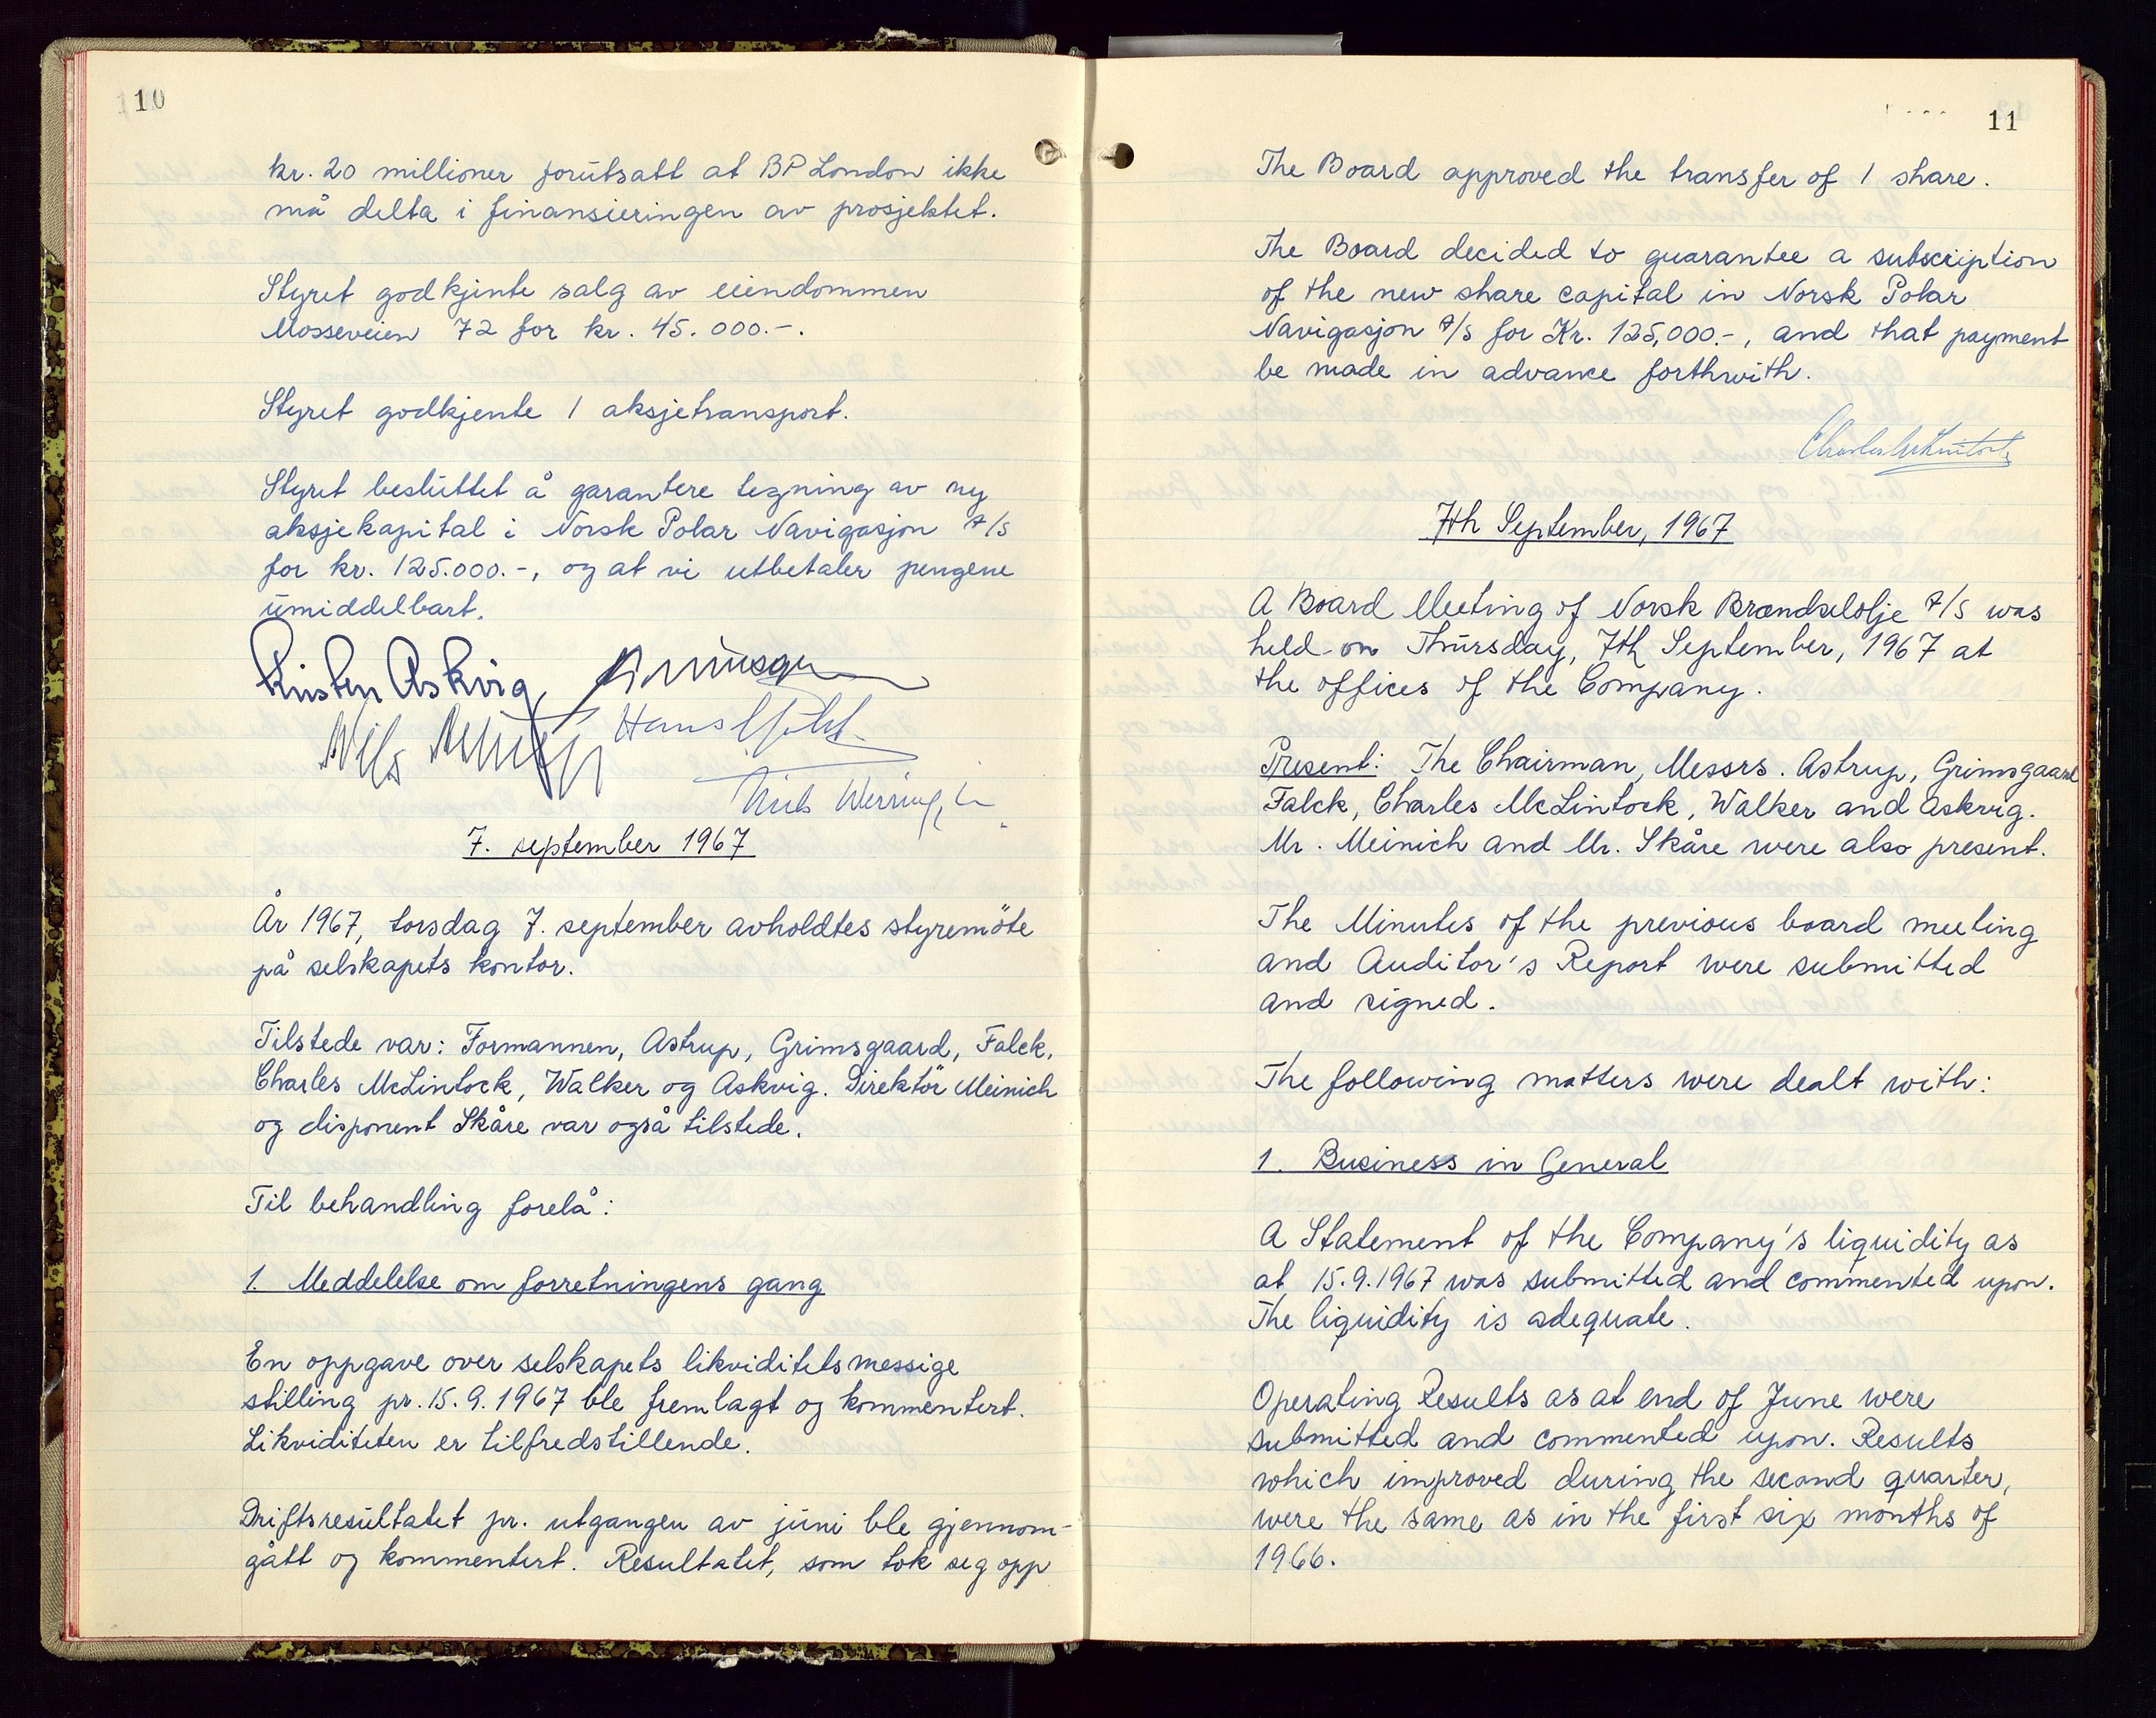 10
kr. 20 millioner forutsatt at BP London ikke
må delta i finansieringen av prosjektet.
Styret godkjente salg av eiendommen
Mosseveien 72 for kr. 45.000.-.
Styret godkjente 1 aksjetransport.
Styret besluttet å garantere tegning av ny
aksjekapital i Norsk Polar Navigasjon A/S
for kr. 125.000.-, og at vi utbetaler pengene
umiddelbart.
Kristen Askvig
Nils
Hans
Niels Werring jr.
7. september 1967
År 1967, torsdag 7. september avholdtes styremöte
på selskapets kontor.
Tilstede var: Formannen, Astrup, Grimsgaard, Falck,
Charles McLintock, Walker og Askvig. Direktör Meinich
og disponent Skåre var også tilstede.
Til behandling forelå:
1. Meddelelse om forretningens gang
En oppgave over selskapets likviditetsmessige
stilling pr. 15.9.1967 ble fremlagt og kommentert.
Likviditeten er tilfredstillende.
Driftsresultatet pr. utgangen av juni ble gjennom-
gått og kommentert. Resultatet, som tok seg opp
11
The Board approved the transfer of 1 share.
The Board decided to guarantee a subscription
of the new share capital in Norsk Polar
Navigasjon A/S for Kr. 125,000.-, and that payment
be made in advance forthwith.
Charles McLintock
7th September, 1967
A Board Meeting of Norsk Brændselolje A/S was
held on Thursday, 7th September, 1967 at
the offices of the Company.
Present: The Chairman, Messrs. Astrup, Grimsgaard
Falck, Charles McLintock, Walker and Askvig.
Mr. Meinich and Mr. Skåre were also present.
The Minutes of the previous board meeting
and Auditor's Report were submitted
and signed.
The following matters were dealt with:
1. Business in General
A Statement of the Company's liquidity as
at 15.9.1967 was submitted and commented upon.
The liquidity is adequate.
Operating Results as at end of June were
submitted and commented upon. Results
which improved during the second quarter,
were the same as in the first six months of
1966.